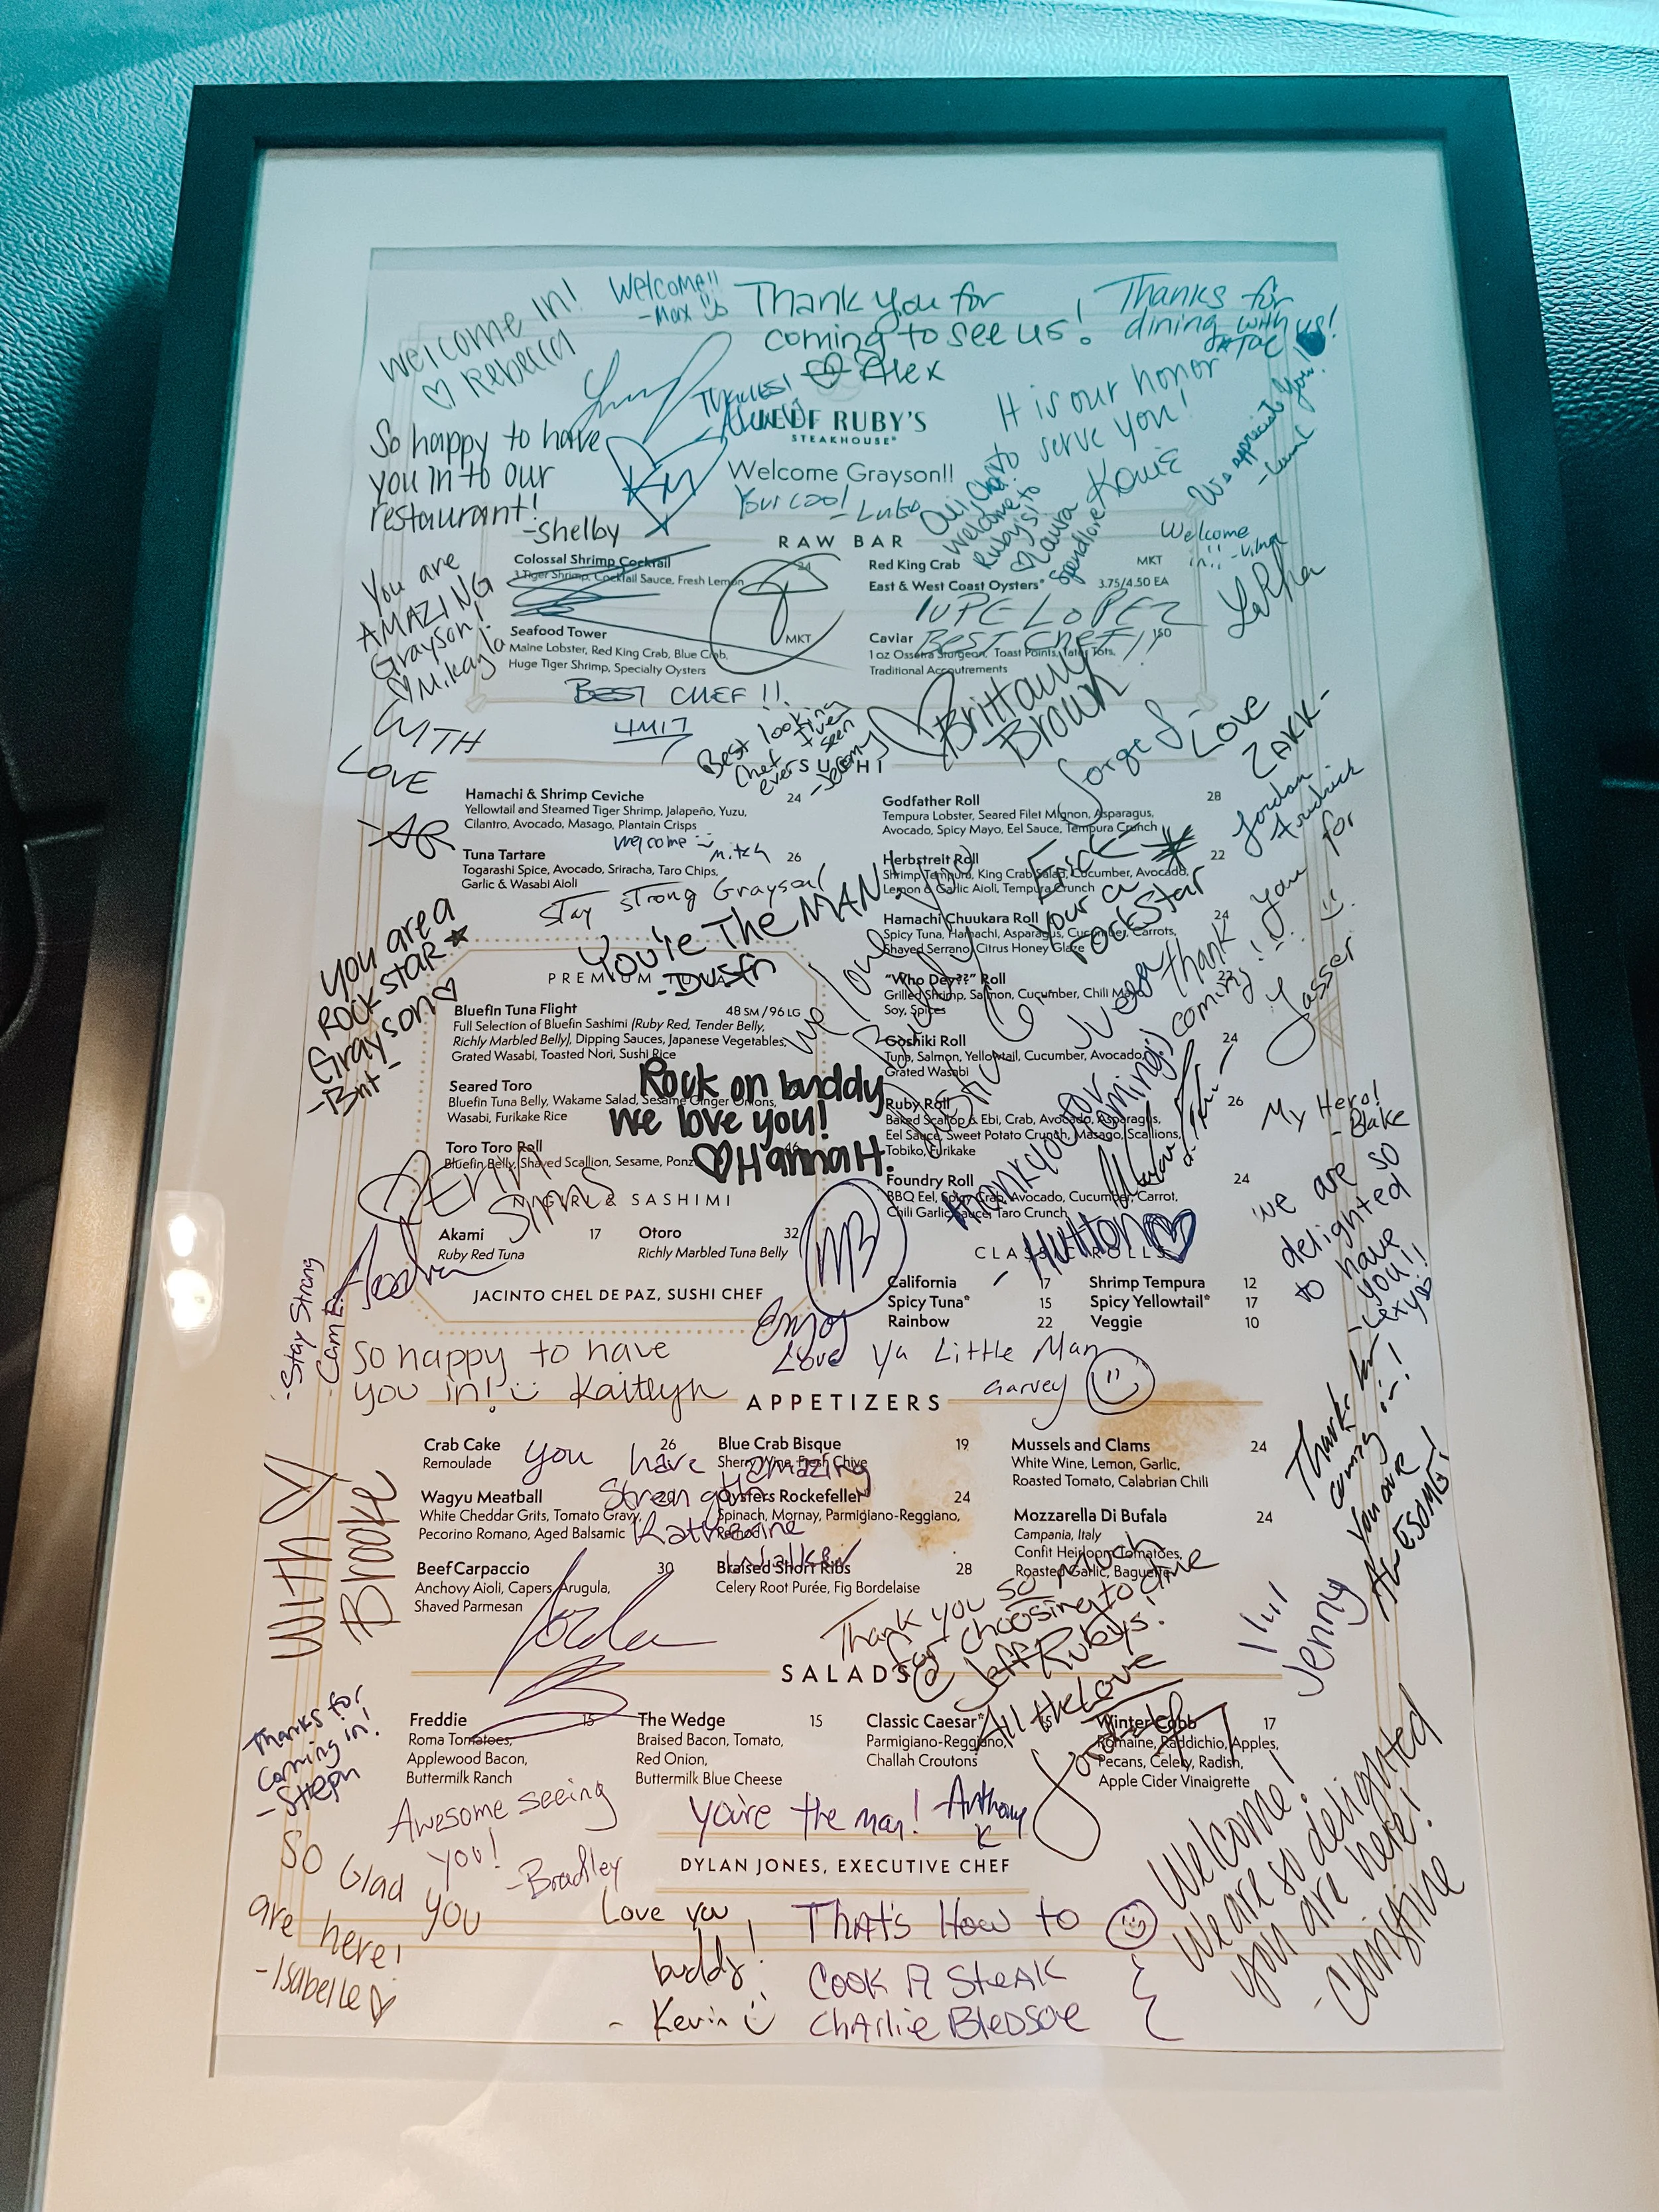 Welcome in!
♡ Rebecca
Welcome!!
- Max
Thank you for
coming to see us!
♡ Alex
Thanks for
dining with us!
So happy to have
you in to our
restaurant!
- Shelby
KM
RUBY'S
STEAKHOUSE®
Welcome Grayson!!
Your cool - Lubs
It is our honor
to serve you!
We appreciate you!
Welcome to
Ruby's!
♡ Laura
Spendlove
Welcome
in!!
You are
AMAZING
Grayson!
♡ Mikayla
WITH
LOVE
RAW BAR
Colossal Shrimp Cocktail 24
3 Tiger Shrimp, Cocktail Sauce, Fresh Lemon
Seafood Tower MKT
Maine Lobster, Red King Crab, Blue Crab,
Huge Tiger Shrimp, Specialty Oysters
Red King Crab MKT
East & West Coast Oysters* 3.75/4.50 EA
LUPE LOPEZ
BEST CHEF!!
Caviar 150
1 oz Ossetra Sturgeon, Toast Points, Tater Tots,
Traditional Accoutrements
BEST CHEF!!
Best looking
Chef I've
ever seen
- Jeremy
♡ Brittany
Brown
Jorge S.
- Love
ZAKK -
Jordan
SUSHI
Hamachi & Shrimp Ceviche 24
Yellowtail and Steamed Tiger Shrimp, Jalapeño, Yuzu,
Cilantro, Avocado, Masago, Plantain Crisps
Welcome - Mitch
Tuna Tartare 26
Togarashi Spice, Avocado, Sriracha, Taro Chips,
Garlic & Wasabi Aioli
Stay Strong Grayson!
You're The MAN
- Dustin
Godfather Roll 28
Tempura Lobster, Seared Filet Mignon, Asparagus,
Avocado, Spicy Mayo, Eel Sauce, Tempura Crunch
Herbstreit Roll 22
Shrimp Tempura, King Crab Salad, Cucumber, Avocado,
Lemon & Garlic Aioli, Tempura Crunch
Your a
rockstar
Hamachi Chuukara Roll 24
Spicy Tuna, Hamachi, Asparagus, Cucumber, Carrots,
Shaved Serrano, Citrus Honey Glaze
"Who Dey??" Roll 22
Grilled Shrimp, Salmon, Cucumber, Chili Mayo
Soy, Spices
Goshiki Roll 24
Tuna, Salmon, Yellowtail, Cucumber, Avocado,
Grated Wasabi
Ruby Roll 26
Baked Scallop & Ebi, Crab, Avocado, Asparagus,
Eel Sauce, Sweet Potato Crunch, Masago, Scallions,
Tobiko, Furikake
Foundry Roll 24
BBQ Eel, Spicy Crab, Avocado, Cucumber, Carrot,
Chili Garlic Sauce, Taro Crunch
Thank you for
coming!
Yasser
Thank you for
coming!
- Hutton ♡
My Hero!
- Blake
We are so
delighted
to have
you!!
- Lexys
You are a
ROCKSTAR ★
Grayson ♡
- Brit -
PREMIUM TUNA
Bluefin Tuna Flight 48 SM / 96 LG
Full Selection of Bluefin Sashimi (Ruby Red, Tender Belly,
Richly Marbled Belly), Dipping Sauces, Japanese Vegetables,
Grated Wasabi, Toasted Nori, Sushi Rice
Seared Toro
Bluefin Tuna Belly, Wakame Salad, Sesame Ginger Onions,
Wasabi, Furikake Rice
Toro Toro Roll 46
Bluefin Belly, Shaved Scallion, Sesame, Ponzu
Rock on buddy
we love you!
♡ Hanna H.
Sims
NIGIRI & SASHIMI
Akami 17
Ruby Red Tuna
Otoro 32
Richly Marbled Tuna Belly
JACINTO CHEL DE PAZ, SUSHI CHEF
MB
CLASSIC ROLLS
California 17
Spicy Tuna* 15
Rainbow 22
Shrimp Tempura 12
Spicy Yellowtail* 17
Veggie 10
- Stay Strong
- Cam E.
Enjoy
Love Ya Little Man
Garvey
So happy to have
you in! Kaitlyn
APPETIZERS
Crab Cake 26
Remoulade
Wagyu Meatball
White Cheddar Grits, Tomato Gravy,
Pecorino Romano, Aged Balsamic
Beef Carpaccio 30
Anchovy Aioli, Capers, Arugula,
Shaved Parmesan
Blue Crab Bisque 19
Sherry Wine, Fresh Chive
Oysters Rockefeller* 24
Spinach, Mornay, Parmigiano-Reggiano,
Braised Short Ribs 28
Celery Root Purée, Fig Bordelaise
Mussels and Clams 24
White Wine, Lemon, Garlic,
Roasted Tomato, Calabrian Chili
Mozzarella Di Bufala 24
Campania, Italy
Confit Heirloom Tomatoes,
Roasted Garlic, Baguette
You have amazing
Strength
Katherine
Walker
With ♡
Brooke
Thanks for
coming in!
You are
AWESOME!
Jenny
Thank you so much
for choosing to dine
@ Jeff Rubys!
All the Love
SALADS
Freddie 15
Roma Tomatoes,
Applewood Bacon,
Buttermilk Ranch
The Wedge 15
Braised Bacon, Tomato,
Red Onion,
Buttermilk Blue Cheese
Classic Caesar* 15
Parmigiano-Reggiano,
Challah Croutons
Winter Cobb 17
Romaine, Raddichio, Apples,
Pecans, Celery, Radish,
Apple Cider Vinaigrette
Thanks for
coming in!
- Steph
Awesome seeing
you!
- Bradley
You're the man! - Anthony
K
DYLAN JONES, EXECUTIVE CHEF
So Glad you
are here!
- Isabelle ♡
Love you
buddy!
- Kevin
That's How to
COOK A STEAK
Charlie Bledsoe
Welcome!
We are so delighted
you are here!
- Christine